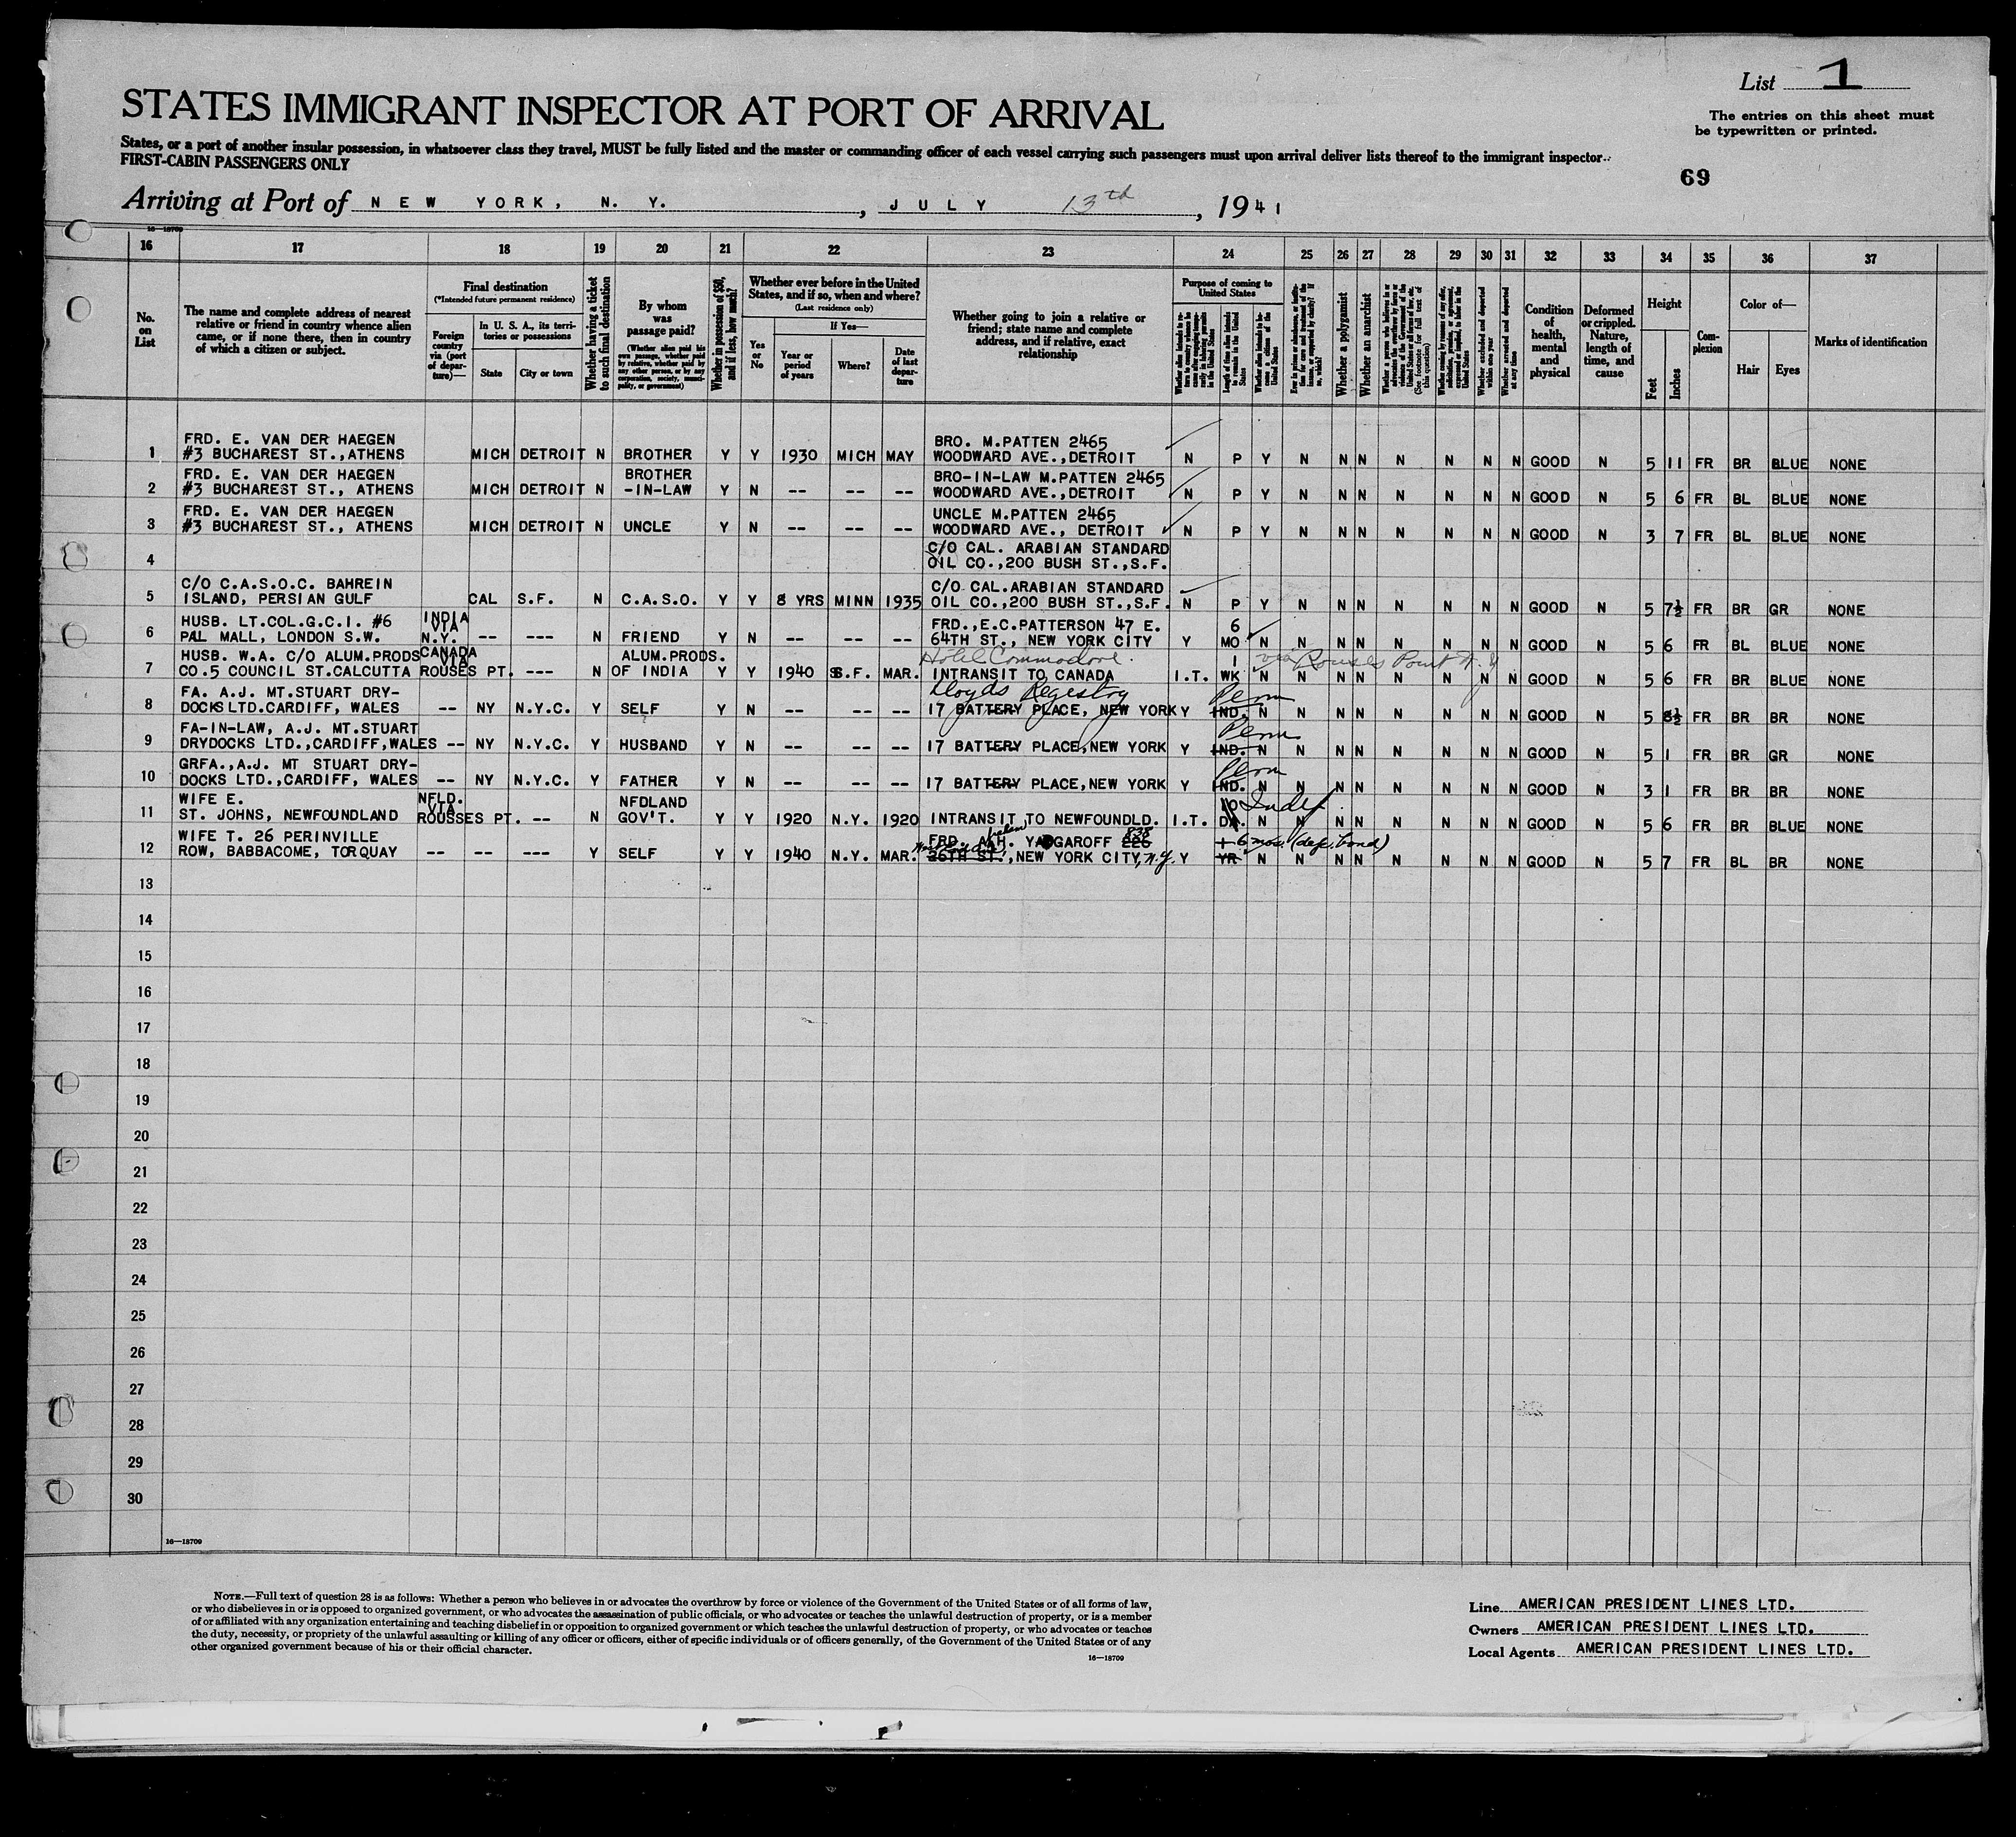 List 1
STATES IMMIGRANT INSPECTOR AT PORT OF ARRIVAL
The entries on this sheet must
be typewritten or printed.
States, or a port of another insular possession, in whatsoever class they travel, MUST be fully listed and the master or commanding officer of each vessel carrying such passengers must upon arrival deliver lists thereof to the immigrant inspector.
FIRST-CABIN PASSENGERS ONLY
69
Arriving at Port of NEW YORK, N. Y., JULY 13th, 1941
16—18709
16 17 18 19 20 21 22 23 24 25 26 27 28 29 30 31 32 33 34 35 36 37
No. on List
The name and complete address of nearest relative or friend in country whence alien came, or if none there, then in country of which a citizen or subject.
Final destination
(*Intended future permanent residence)
Foreign country via (port of departure)—
In U. S. A., its territories or possessions
State
City or town
Whether having a ticket to such final destination
By whom was passage paid?
(Whether alien paid his own passage, whether paid by relative, whether paid by any other person, or by any corporation, society, municipality, or government)
Whether in possession of $50, and if less, how much?
Whether ever before in the United States, and if so, when and where?
(Last residence only)
Yes or No
If Yes—
Year or period of years
Where?
Date of last departure
Whether going to join a relative or friend; state name and complete address, and if relative, exact relationship
Purpose of coming to United States
Length of time alien intends to remain in the United States
Whether alien intends to become a citizen of the United States
Whether a polygamist
Whether an anarchist
(See footnote for full text of this question)
Whether excluded and deported within one year
Whether arrested and deported at any time
Condition of health, mental and physical
Deformed or crippled. Nature, length of time, and cause
Height
Feet
Inches
Complexion
Color of—
Hair
Eyes
Marks of identification
1 FRD. E. VAN DER HAEGEN #3 BUCHAREST ST.,ATHENS MICH DETROIT N BROTHER Y Y 1930 MICH MAY BRO. M.PATTEN 2465 WOODWARD AVE.,DETROIT N P Y N N N N N N N GOOD N 5 11 FR BR BLUE NONE
2 FRD. E. VAN DER HAEGEN #3 BUCHAREST ST., ATHENS MICH DETROIT N BROTHER -IN-LAW Y N -- -- -- BRO-IN-LAW M.PATTEN 2465 WOODWARD AVE.,DETROIT N P Y N N N N N N N GOOD N 5 6 FR BL BLUE NONE
3 FRD. E. VAN DER HAEGEN #3 BUCHAREST ST., ATHENS MICH DETROIT N UNCLE Y N -- -- -- UNCLE M.PATTEN 2465 WOODWARD AVE., DETROIT N P Y N N N N N N N GOOD N 3 7 FR BL BLUE NONE
4 C/O CAL. ARABIAN STANDARD OIL CO.,200 BUSH ST.,S.F.
5 C/O C.A.S.O.C. BAHREIN ISLAND, PERSIAN GULF CAL S.F. N C.A.S.O. Y Y 8 YRS MINN 1935 C/O CAL.ARABIAN STANDARD OIL CO.,200 BUSH ST.,S.F. N P Y N N N N N N N GOOD N 5 7½ FR BR GR NONE
6 HUSB. LT.COL.G.C.I. #6 PALL MALL, LONDON S.W. INDIA VIA N.Y. -- --- N FRIEND Y N -- -- -- FRD.,E.C.PATTERSON 47 E. 64TH ST., NEW YORK CITY Y 6 MO N N N N N N N N GOOD N 5 6 FR BL BLUE NONE
7 HUSB. W.A. C/O ALUM.PRODS CO.5 COUNCIL ST.CALCUTTA CANADA VIA ROUSES PT. --- N ALUM.PRODS. OF INDIA Y Y 1940 S.F. MAR. Hotel Commodore. INTRANSIT TO CANADA I.T. 1 WK via Rouses Point N.Y N N N N N N N N GOOD N 5 6 FR BR BLUE NONE
8 FA. A.J. MT.STUART DRY-DOCKS LTD.CARDIFF, WALES -- NY N.Y.C. Y SELF Y N -- -- -- Lloyds Regestry 17 BATTERY PLACE, NEW YORK Y Perm IND. N N N N N N N N GOOD N 5 8½ FR BR BR NONE
9 FA-IN-LAW, A.J. MT.STUART DRYDOCKS LTD.,CARDIFF,WALES -- NY N.Y.C. Y HUSBAND Y N -- -- -- 17 BATTERY PLACE,NEW YORK Y Perm IND. N N N N N N N N GOOD N 5 1 FR BR GR NONE
10 GRFA.,A.J. MT STUART DRY-DOCKS LTD.,CARDIFF, WALES -- NY N.Y.C. Y FATHER Y N -- -- -- 17 BATTERY PLACE,NEW YORK Y Perm IND. N N N N N N N N GOOD N 3 1 FR BR BR NONE
11 WIFE E. ST. JOHNS, NEWFOUNDLAND NFLD. VIA ROUSSES PT. -- N NFDLAND GOV'T. Y Y 1920 N.Y. 1920 INTRANSIT TO NEWFOUNDLD. I.T. 10 Indef. N N N N N N N N GOOD N 5 6 FR BR BLUE NONE
12 WIFE T. 26 PERINVILLE ROW, BABBACOME, TORQUAY -- -- --- Y SELF Y Y 1940 N.Y. MAR. FRD. H. YADGAROFF 226 838 26TH ST.,NEW YORK CITY, N.Y. Y 1 YR 6 mos. (dep. bond) N N N N N N N N GOOD N 5 7 FR BL BR NONE
13
14
15
16
17
18
19
20
21
22
23
24
25
26
27
28
29
30
16—18709
NOTE.—Full text of question 28 is as follows: Whether a person who believes in or advocates the overthrow by force or violence of the Government of the United States or of all forms of law,
or who disbelieves in or is opposed to organized government, or who advocates the assassination of public officials, or who advocates or teaches the unlawful destruction of property, or is a member
of or affiliated with any organization entertaining and teaching disbelief in or opposition to organized government or which teaches the unlawful destruction of property, or who advocates or teaches
the duty, necessity, or propriety of the unlawful assaulting or killing of any officer or officers, either of specific individuals or of officers generally, of the Government of the United States or of any
other organized government because of his or their official character.
16—18709
Line AMERICAN PRESIDENT LINES LTD.
Owners AMERICAN PRESIDENT LINES LTD.
Local Agents AMERICAN PRESIDENT LINES LTD.